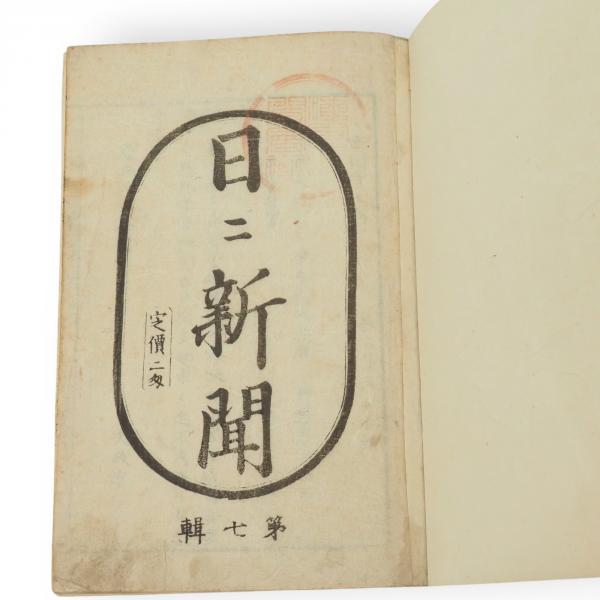 日〻新聞
定價二匁
第七輯